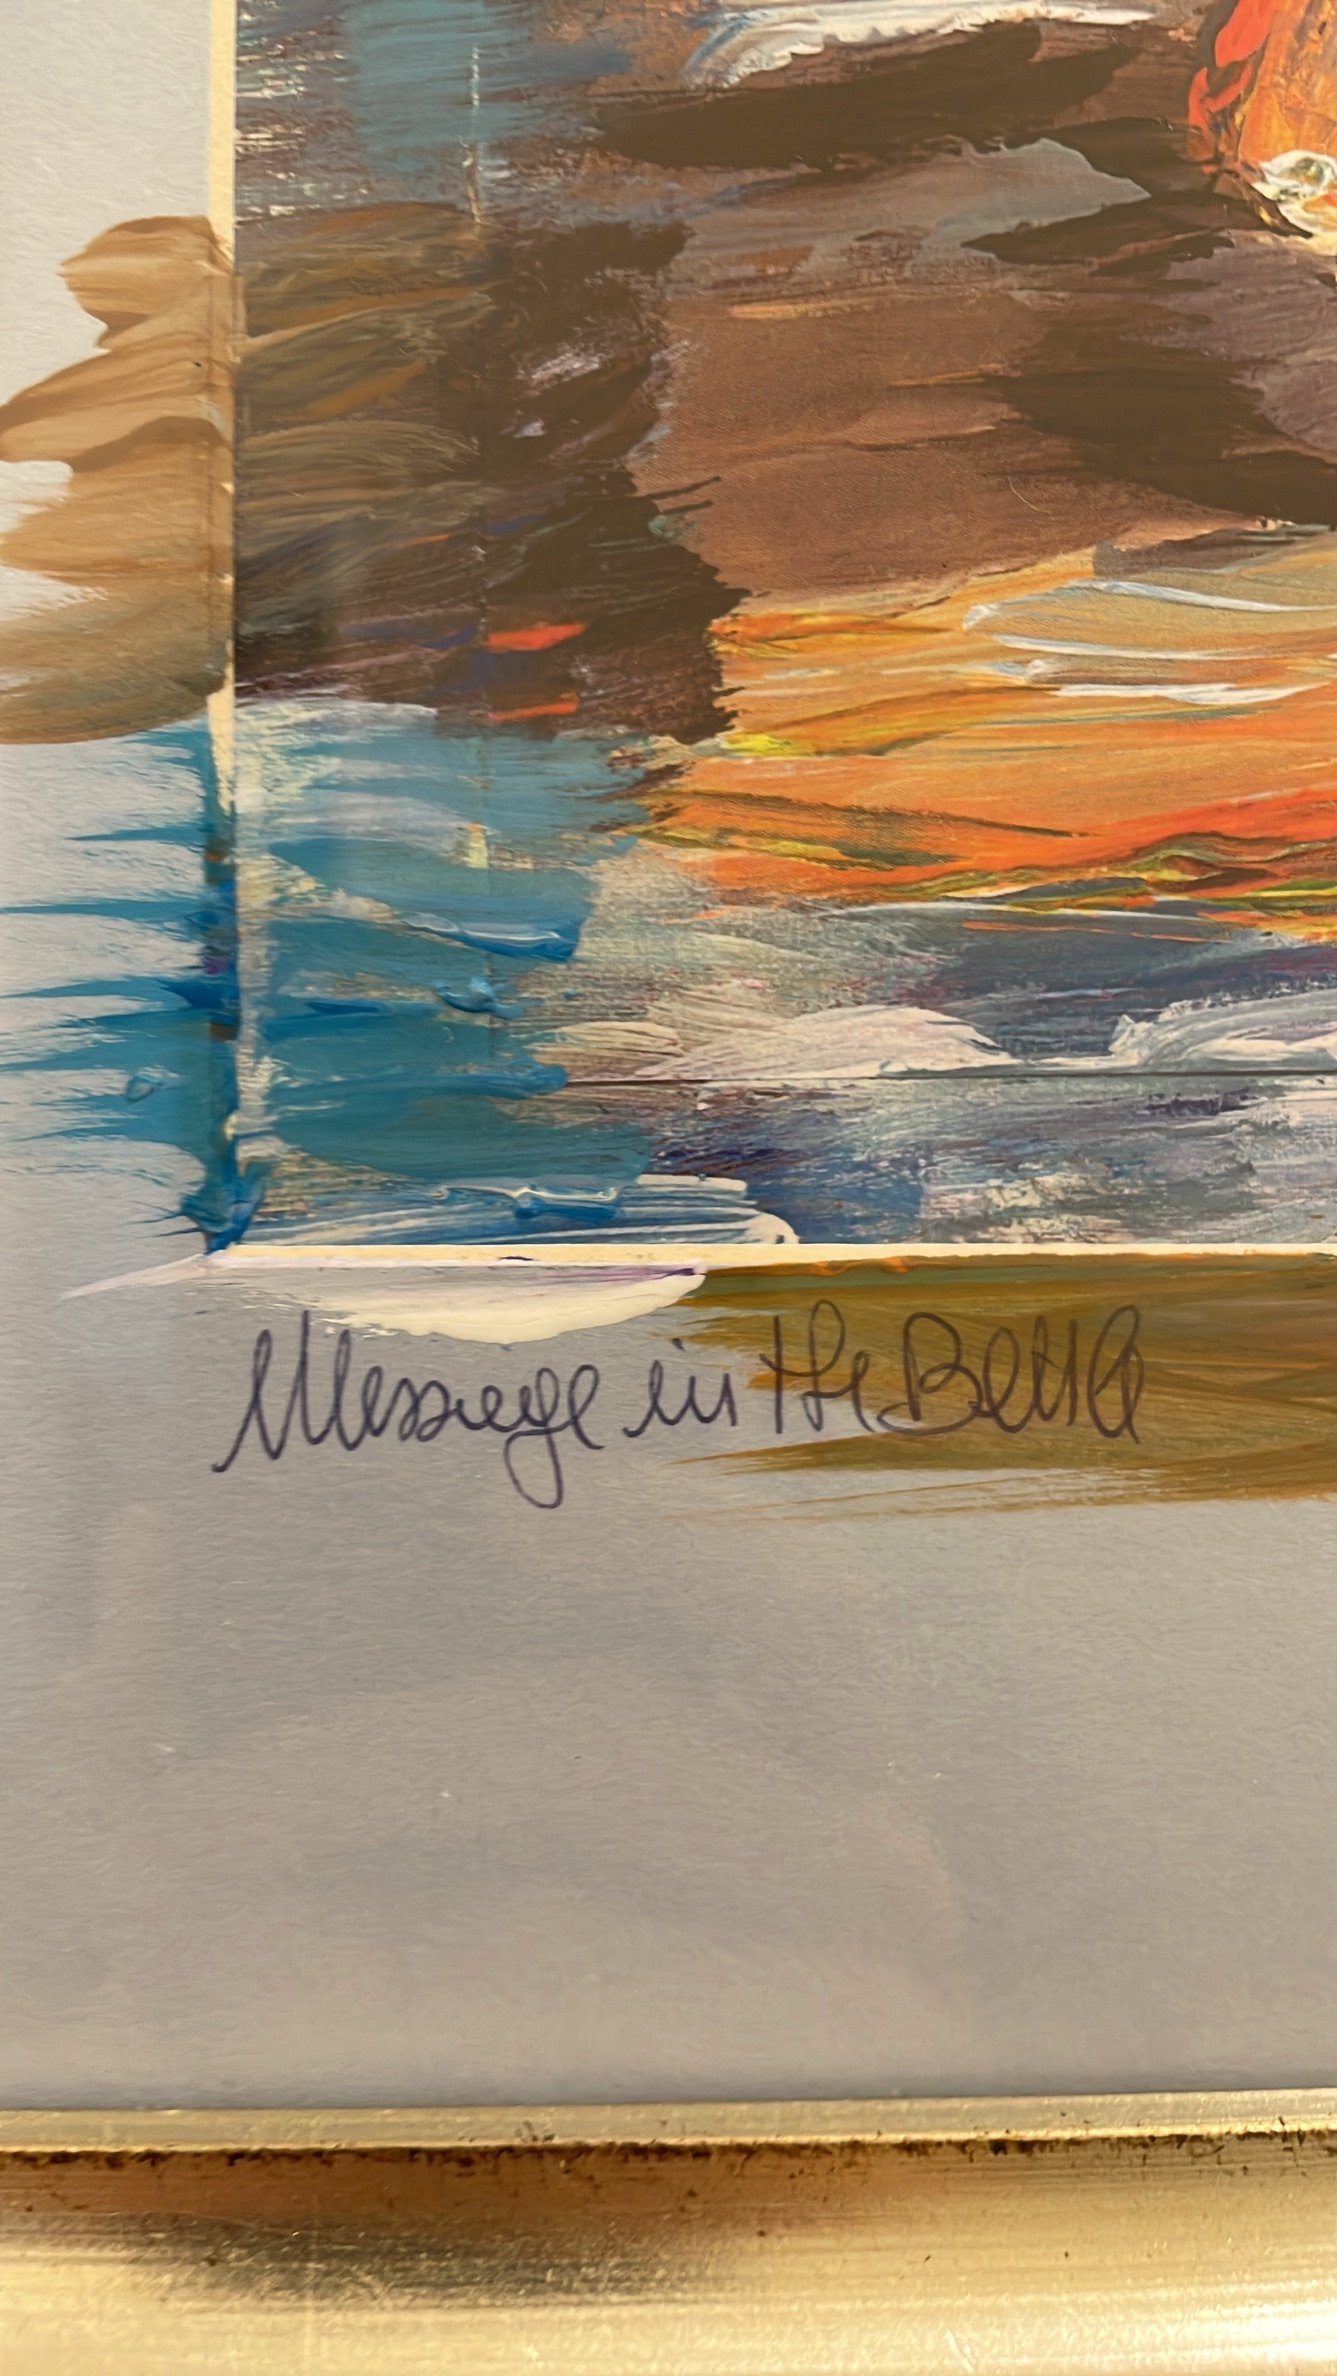 Message in the Bottle